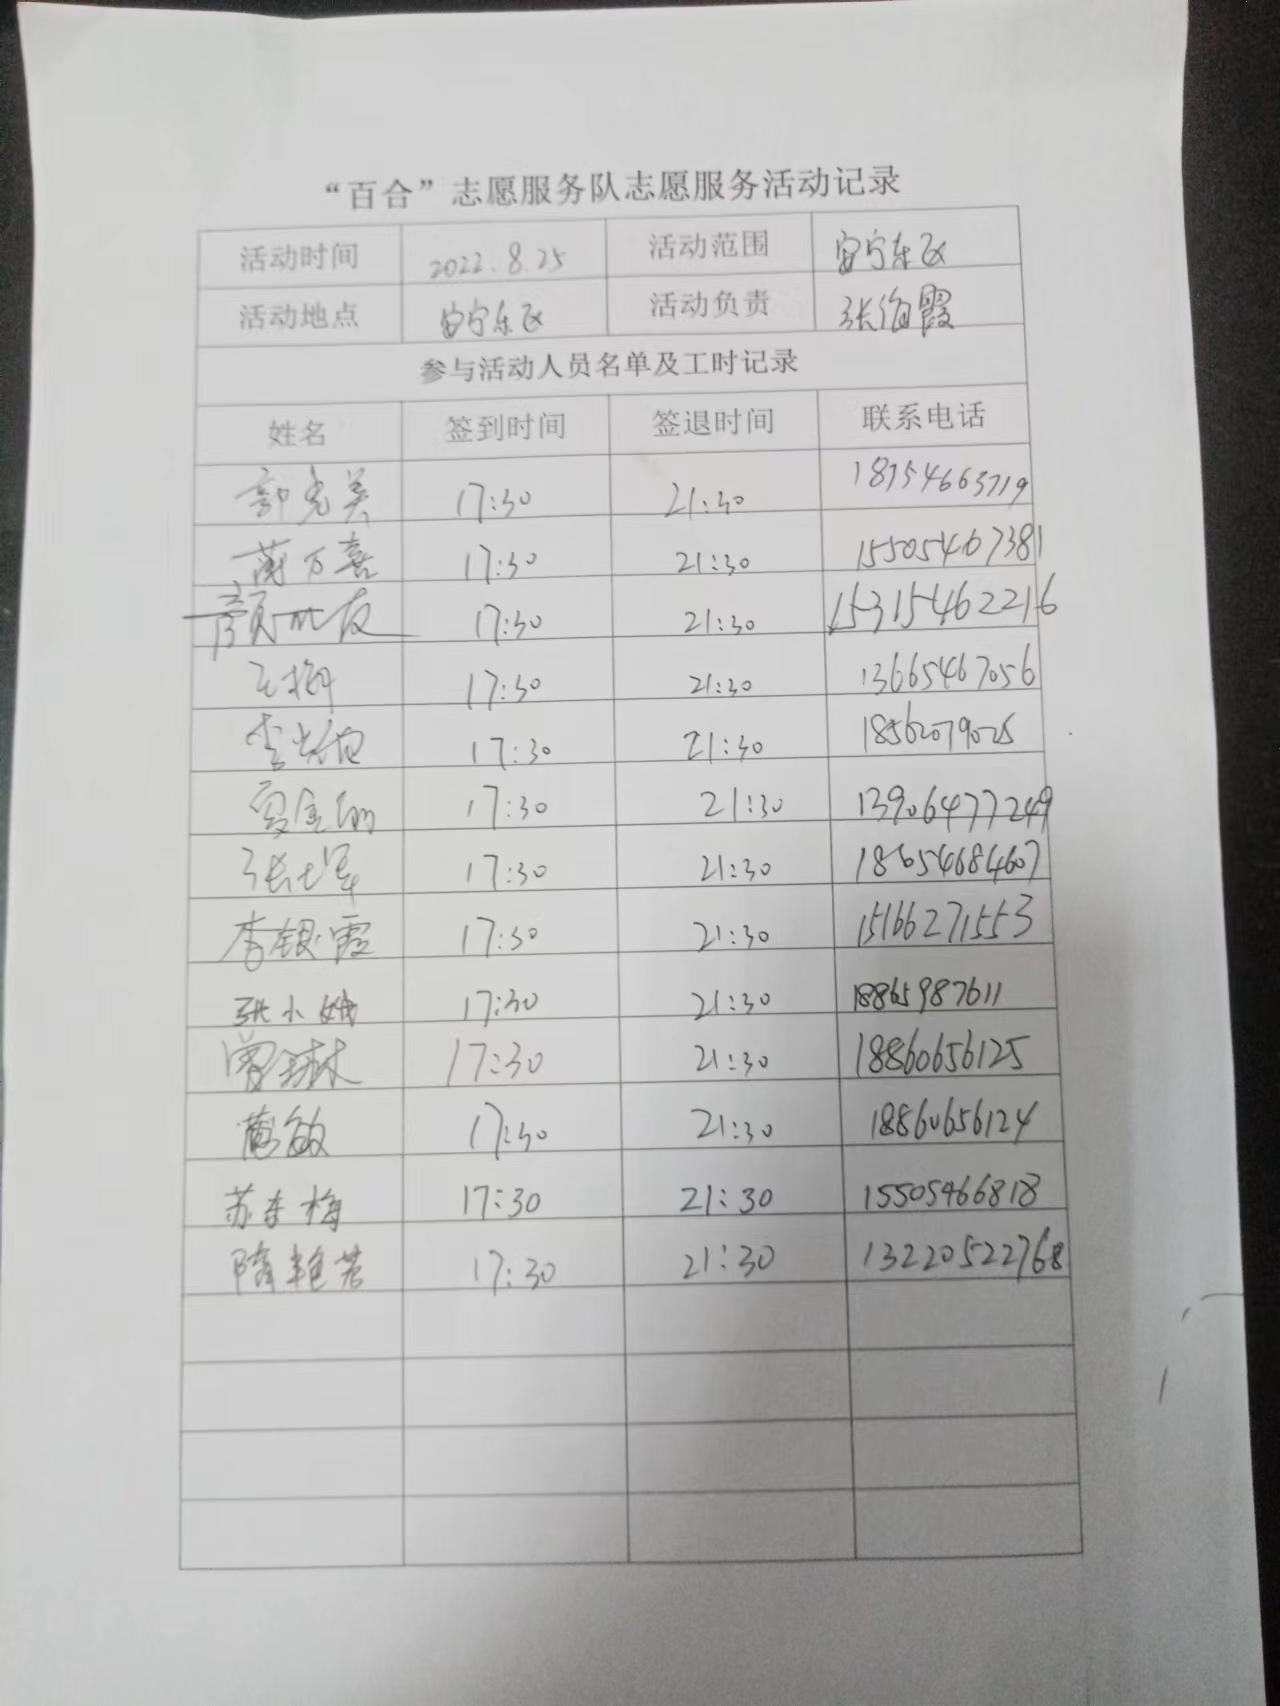 “百合”志愿服务队志愿服务活动记录
活动时间 2022.8.25 活动范围 安宁东区
活动地点 安宁东区 活动负责 张海霞
参与活动人员名单及工时记录
姓名 签到时间 签退时间 联系电话
郭光美 17:30 21:30 18754663719
万喜 17:30 21:30 15505467381
颜世友 17:30 21:30 15315462216
王柳 17:30 21:30 13665467056
李 17:30 21:30 18562079025
17:30 21:30 13906477249
张 17:30 21:30 18654684607
李银霞 17:30 21:30 15166271553
张小娥 17:30 21:30 18865987611
曾琳 17:30 21:30 18860656125
敏 17:30 21:30 18860656124
苏冬梅 17:30 21:30 15505466818
隋艳芳 17:30 21:30 13220522768